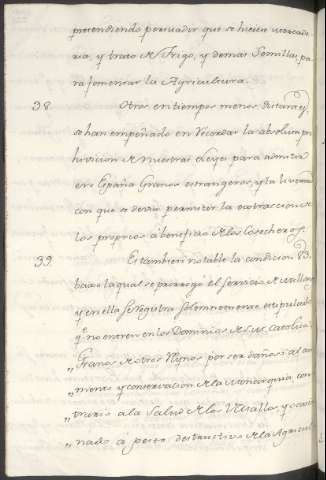 pretendiendo persuadir que se hiciese mercade-
ria, y trato de Trigo, y demas Semillas, pa
ra fomentar la Agricultura.
38 Otros en tiempos menos distantes,
se han empeñado en recordar la absoluta pro
hivicion de nuestras Leyes para admitir
en España Granos estrangeros, y la licencia
con que se devia permitir la extraccion de
los propios á beneficio de los Cosecheros.
39 Es tambien notable la condicion 83.
baxo la qual se prorrogó el servicio de Millones
y en ella se registra solemnemente estipulado
qe. no entren en los Dominios de S. M. Catolica
„ Granos de otros Reynos por ser daños i al au
„ mento y conservacion de la Monarquia, con
„ trario a la Salud de los Vasallos, y ocasio
„ nado á peste destructivo de la Agricul